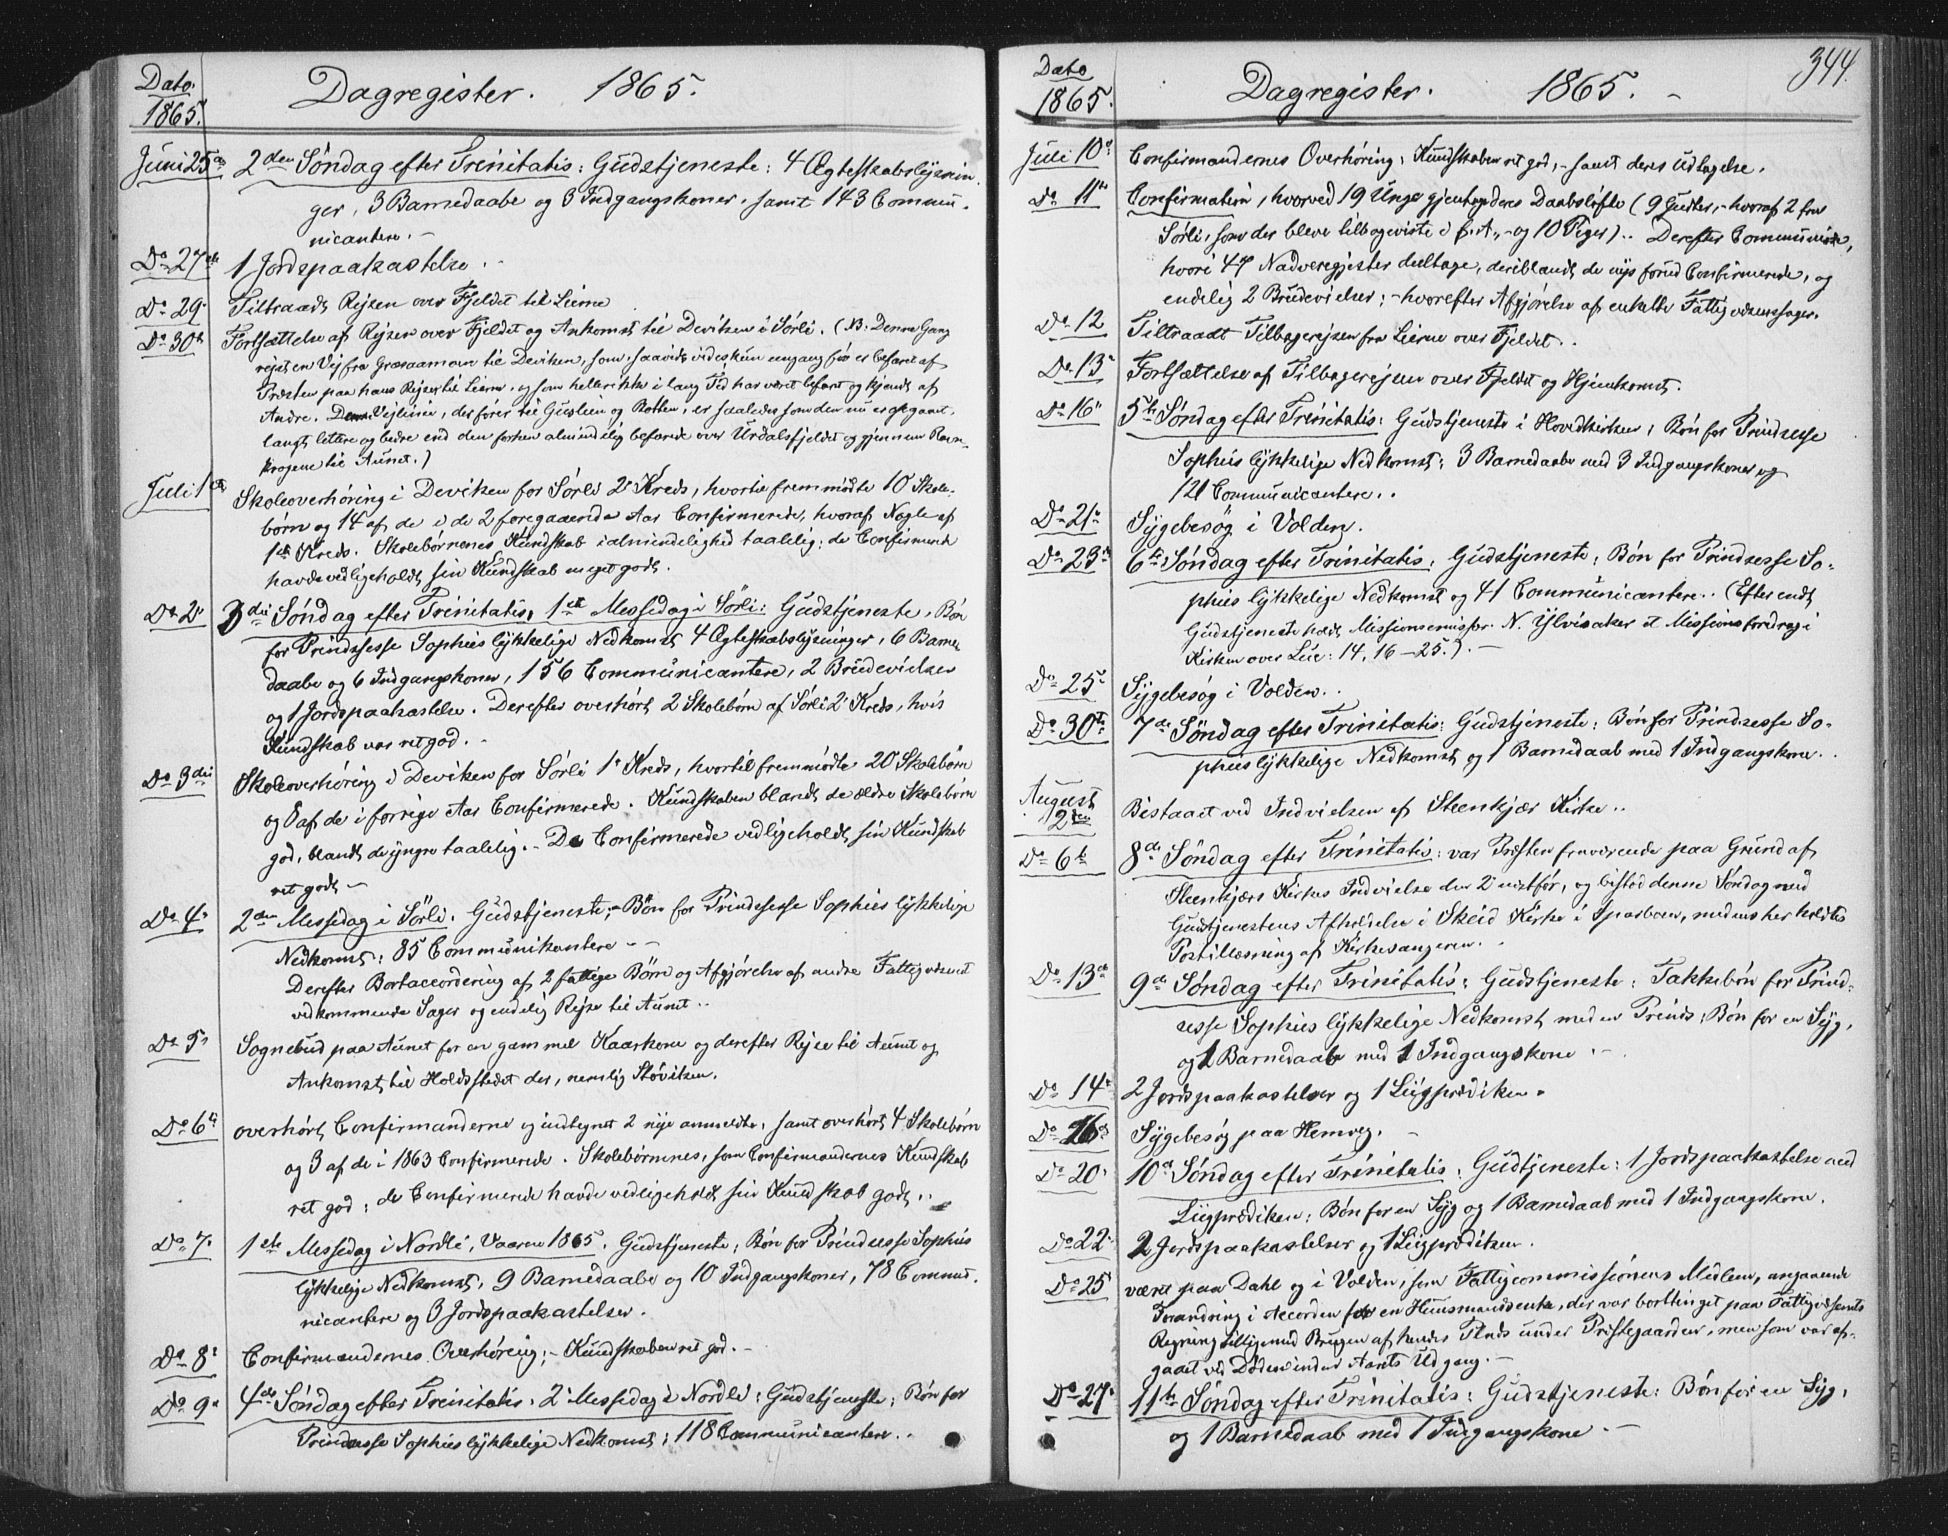 Dato.
1865.
Dagregister. 1865.
Juni 25de 2den Søndag efter Trinitatis: Gudstjeneste: 4 Ægteskabslysnin-
ger, 3 Barnedaabe og 3 Indgangskoner, samt 143 Commu-
nicantere. -
Do 27de 1 Jordspaakastelse.
Do 29. Tiltraadt Rejsen over Fjeldet til Lierne
Do 30te Fortsættelse af Rejsen over Fjeldet og Ankomst til Deviken i Sørli. (NB: Denne Gang
rejst en Vej fra Grøsaamoen til Deviken, som, saavidt vides kun engang før er befaret af
Præsten paa hans Rejser til Lierne, og som heller ikke i lang Tid har været befaret og kjendt af
Andre. Vejlinie, der fører til Guslien og Botten, er saaledes som den nu er opgaaet,
langt lettere og bedre end den forhen almindelig befarede over Urdalsfjeldet og gjennem Ravn-
krogene til Aunet.)
Juli 1ste Skoleoverhøring i Deviken for Sørli 2. Kreds, hvortil fremmødte 10 Skole-
børn og 14 af de i de 2 foregaaende Aar Confirmerede, hvoraf Nogle af
1ste Kreds. Skolebørnenes Kundskab i almindelighed taalelig; de Confirmerede
havde vedligeholdt sin Kundskab meget godt.
Do 2den 3die Søndag efter Trinitatis, 1ste Messedag i Sørli: Gudstjeneste, Bøn
for Prindsesse Sophies lykkelige Nedkomst 4 Ægteskabslysninger, 6 Barne-
daabe og 6 Indgangskoner, 156 Communicantere, 2 Brudevielser
og 1 Jordspaakastelse. Derefter overhørt 2 Skolebørn af Sørli 2. Kreds, hvis
Kundskab var ret god. -
Do 3die Skoleoverhøring i Deviken for Sørli 1. Kreds, hvortil fremmødte 20 Skolebørn
og 8 af de i forrige Aar Confirmerede. Kundskaben blandt de ældre Skolebørn
god, blandt de yngre taalelig. - De Confirmerede vedligeholdt sin Kundskab
ret godt -
Do 4. 2den Messedag i Sørli. Gudstjeneste; - Bøn for Prindsesse Sophies lykkelige
Nedkomst; 85 Communikantere - -
Derefter Bortaccordering af 2 fattige Børn og Afgjørelse af andre Fattigvæsenet
vedkommende Sager og endelig Rejse til Aunet..
Do 5. Sognebud paa Aunet for en gammel Kaarkone og derefter Rejse til Aunet og
Ankomst til Holdstedet der, nemlig Støviken.
Do 6te overhørt Confirmanderne og indtegnet 2 nye anmeldte, samt overhørt 4 Skolebørn
og 3 af de i 1863 Confirmerede. Skolebørnenes, som Confirmandernes Kundskab
ret god; de Confirmerede havde vedligeholdt sin Kundskab godt..
Do 7. 1ste Messedag i Nordli, Vaaren 1865. Gudstjeneste; Bøn for Prindsesse Sophies
lykkelige Nedkomst, 9 Barnedaabe og 10 Indgangskoner, 78 Commu-
nicantere og 3 Jordspaakastelser.
Do 8. Confirmandernes Overhøring; - Kundskaben ret god. -
Do 9. 4de Søndag efter Trinitatis, 2. Messedag i Nordli: Gudstjeneste; Bøn for
Prindsesse Sophies lykkelige Nedkomst; 118 Communicantere..
344.
Dato
1865.
Dagregister. 1865. -
Juli 10de Confirmandernes Overhøring; Kundskaben ret god, - samt deres Udtagelse.
Do 11te Confirmation, hvorved 19 Unge gjentog deres Daabsløfte (9 Gutter, - hvoraf 2 fra
Sørli, som der bleve tilbageviste i f. A., - og 10 Piger).. Derefter Communion,
hvori 47 Nadveregjester deeltoge, deriblandt de nys forud Confirmerede, og
endelig 2 Brudevielser; - hvorefter Afgjørelse af enkelte Fattigvæsenssager.
Do 12 Tiltraadt Tilbagerejsen fra Lierne over Fjeldet..
Do 13. Fortsættelse af Tilbagerejsen over Fjeldet og Hjemkomst.
Do 16. 5te Søndag efter Trinitatis: Gudstjeneste i Hovedkirken; Bøn for Prindsesse
Sophies lykkelige Nedkomst; 3 Barnedaabe med 3 Indgangskoner og
121 Communicantere..
Do 21de Sygebesøg i Volden.
Do 23de 6te Søndag efter Trinitatis; Gudstjeneste; Bøn for Prindsesse So-
phies lykkelige Nedkomst og 41 Communicantere.. (Efter endt
Gudstjeneste holdt Missionsemissær N. Ylvisaker et Missionsforedrag i
Kirken over Luc: 14, 16-25.). -
Do 25. Sygebesøg i Volden..
Do 30te 7de Søndag efter Trinitatis: Gudstjeneste: Bøn for Prindsesse So-
phies lykkelige Nedkomst og 1 Barnedaab med 1 Indgangskone..
August
2den Bistaaet ved Indvielsen af Steenkjær Kirke..
Do 6te 8de Søndag efter Trinitatis: var Præsten fraværende paa Grund af
Steenkjærs Kirkes Indvielse den 2. næstfør, og bistod denne Søndag med
Gudstjenestens Afholdelse i Skeid Kirke i Sparboen, medens her holdtes
Postillæsning af Kirkesangeren..
Do 13de 9de Søndag efter Trinitatis; Gudstjeneste: Takkebøn for Prind-
sesse Sophies lykkelige Nedkomst med en Prinds, Bøn for en Syg,
og 1 Barnedaab med 1 Indgangskone. -
Do 14. 2 Jordspaakastelser og 1 Liigprædiken.
Do 16de Sygebesøg paa Hemveg. -
Do 20. 10de Søndag efter Trinitatis: Gudtjeneste: 1 Jordspaakastelse med
Liigprædiken; Bøn for en Syg og 1 Barnedaab med 1 Indgangskone.
Do 22. 2 Jordspaakastelser og 1 Liigprædiken.
Do 25 været paa Dahl og i Volden, som Fattigcommissionens Medlem, angaaende
Forandring i Accorden for en Huusmandsenke, der var borttinget paa Fattigvæsenets
Regning tilligemed Brugen af hendes Plads under Præstegaarden, men som var af-
gaaet ved Døden inden Aarets Udgang. -
Do 27. 11te Søndag efter Trinitatis: Gudstjeneste: Bøn for en Syg,
og 1 Barnedaab med 1 Indgangskone. -